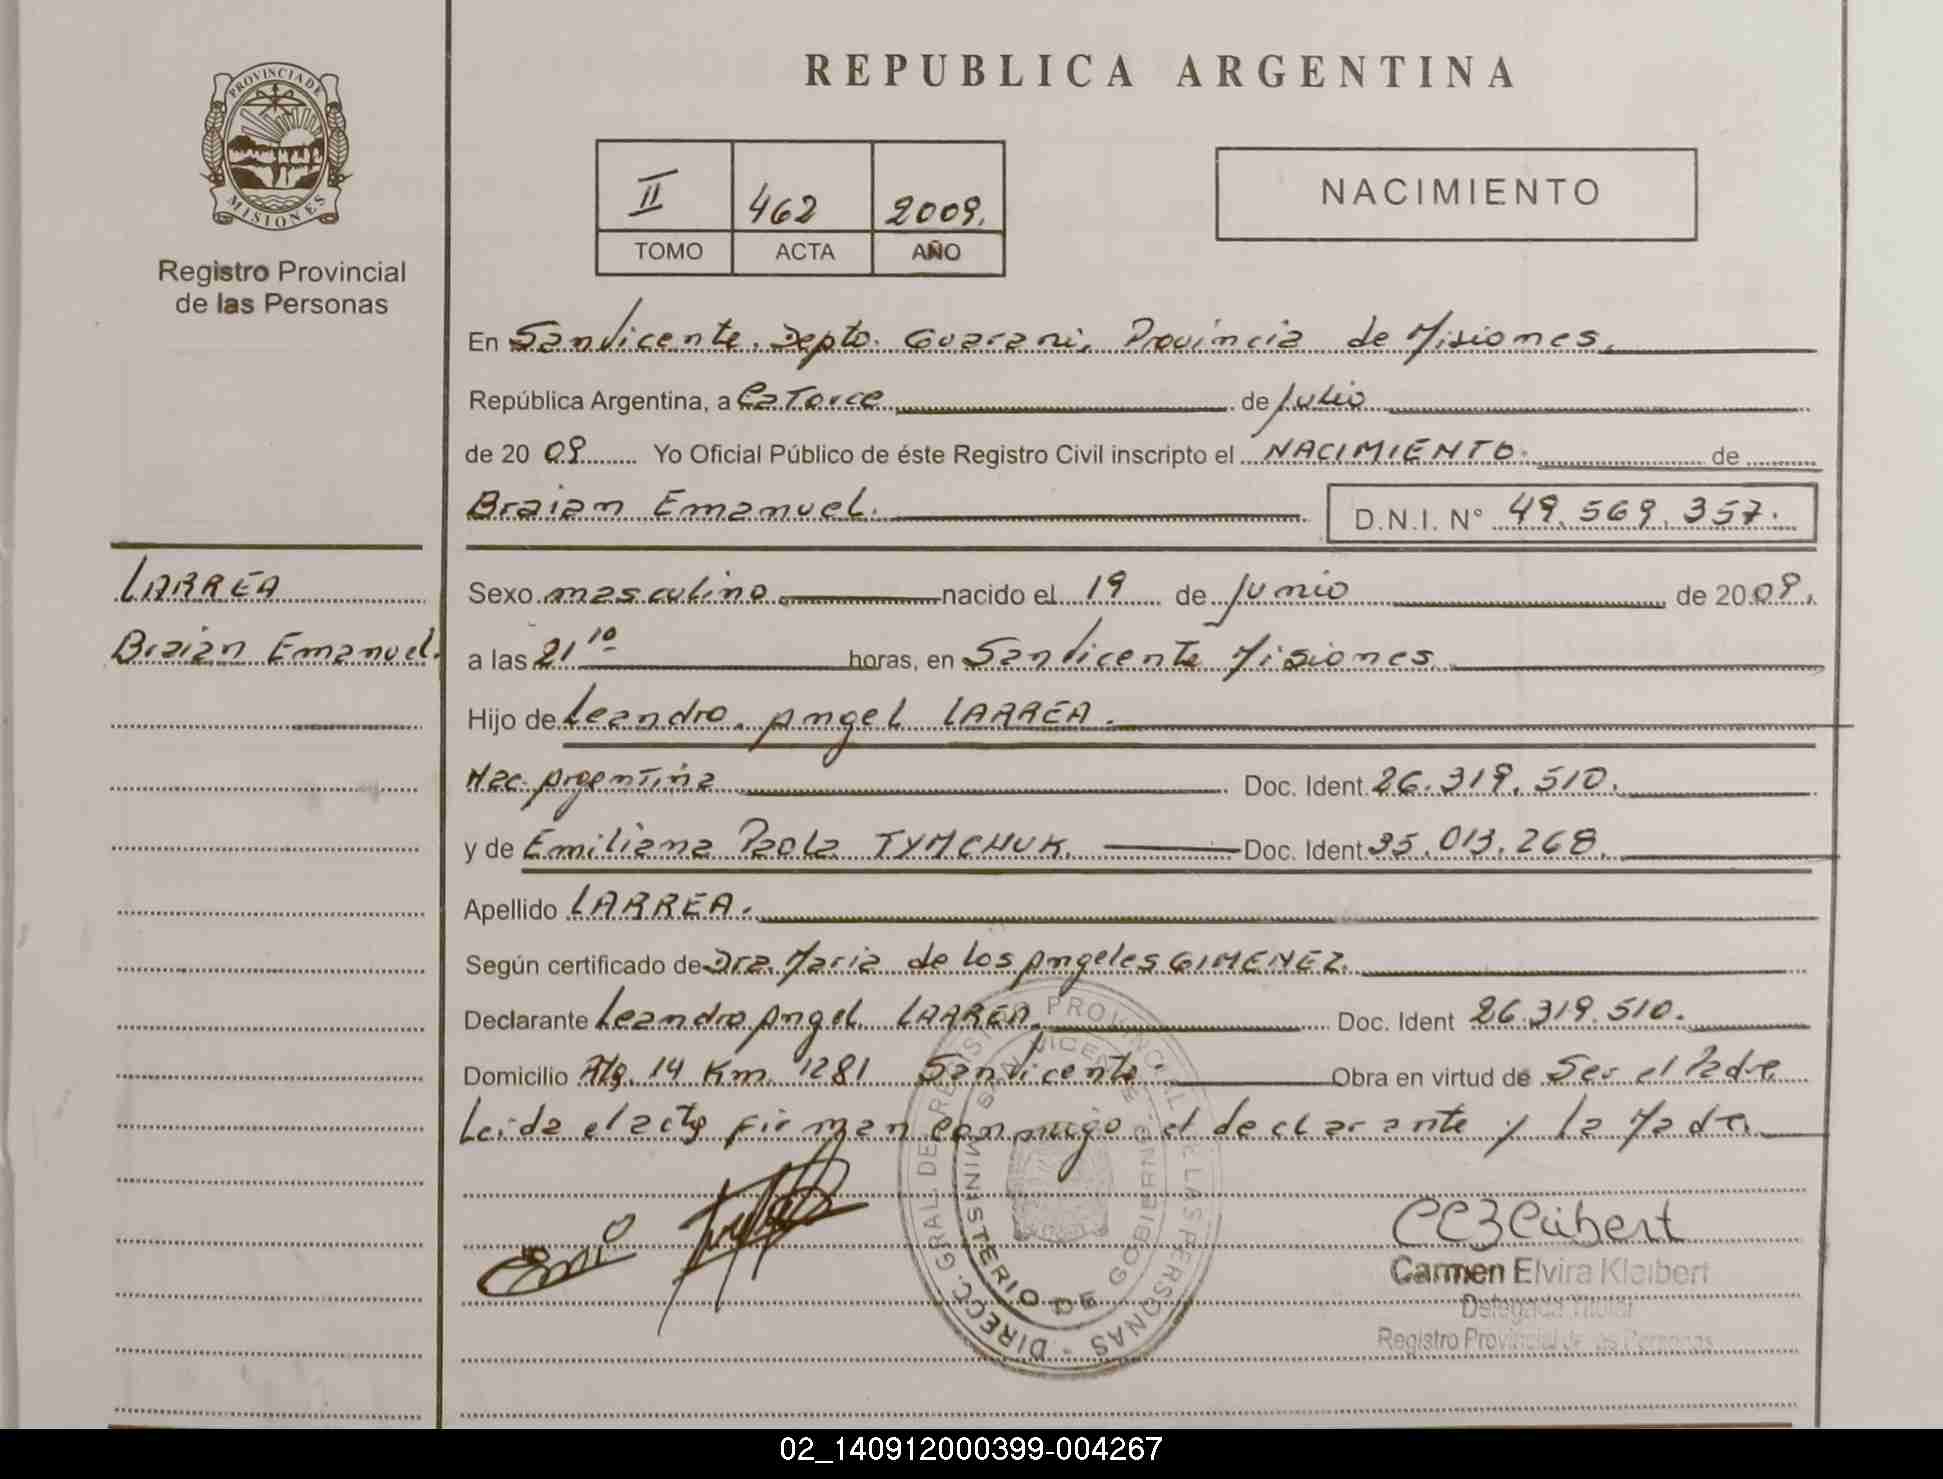 REPUBLICA ARGENTINA
PROVINCIA DE
MISIONES
Registro Provincial
de las Personas
II 462 2009.
TOMO ACTA AÑO
NACIMIENTO
En San Vicente. Depto. Guarani, Provincia de Misiones.
República Argentina, a Catorce de Julio
de 20 09 Yo Oficial Público de éste Registro Civil inscripto el NACIMIENTO. de
Braian Emanuel. D.N.I. N° 49.569.357.
LARREA
Braian Emanuel.
Sexo masculino nacido el 19 de Junio de 20 09.
a las 21 10 horas, en San Vicente Misiones
Hijo de Leandro. Angel LARREA.
Nac. Argentina Doc. Ident. 26.319.510.
y de Emiliana Paola TYMCHUK. Doc. Ident. 35.013.268.
Apellido LARREA.
Según certificado de Dra. Maria de los Angeles GIMENEZ.
Declarante Leandro Angel LARREA. Doc. Ident 26.319.510.
Domicilio Km. 1281 San Vicente. Obra en virtud de Ser el Padre
Leida el acta firman conmigo el declarante y la Madre.
DIRECC. GRAL. DE REGISTRO PROVINCIAL DE LAS PERSONAS
MINISTERIO DE GOBIERNO
SAN VICENTE
Emi
Carmen Elvira Kleibert
Delegada Titular
Registro Provincial de las Personas
02_140912000399-004267